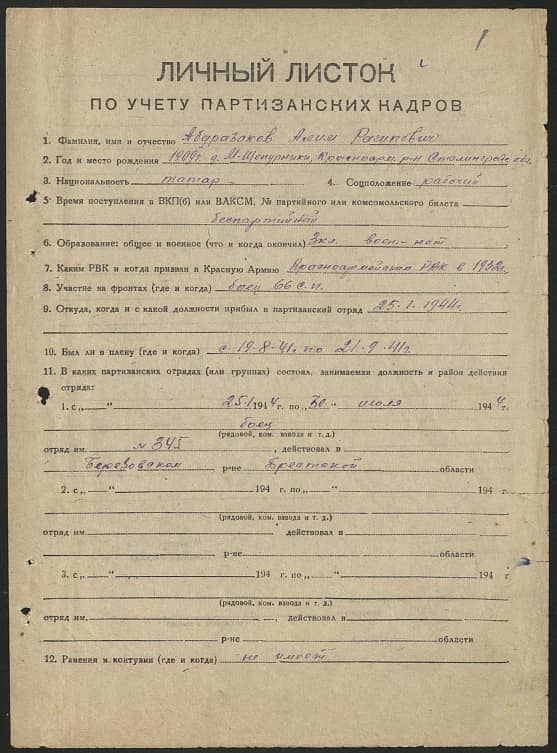 1
ЛИЧНЫЙ ЛИСТОК
ПО УЧЕТУ ПАРТИЗАНСКИХ КАДРОВ
1. Фамилия, имя и отчество Абдразаков Алим
2. Год и место рождения 1909г. д. М-Шепурники, Красноарм. р-н Сталинград. обл.
3. Национальность татар 4. Соцположение рабочий
5. Время поступления в ВКП(б) или ВЛКСМ, № партийного или комсомольского билета
беспартийной
6. Образование: общее и военное (что и когда окончил) 3кл. воен.-нет
7. Каким РВК и когда призван в Красную Армию Красноармейским РВК в 1932г.
8. Участие на фронтах (где и когда) боец 66 с.п.
9. Откуда, когда и с какой должности прибыл в партизанский отряд 25-1-1944г.
10. Был ли в плену (где и когда) с 19-8-41г. по 21-9-41г.
11. В каких партизанских отрядах (или группах) состоял, занимаемая должность и район действия
отряда:
1. с „ “ 25.1 1944 г. по „ “ июля 1944 г.
боец
(рядовой, ком. взвода и т. д.)
отряд им. № 345, действовал в
Березовском р-не Брестской области
2. с „ “ 194 г. по „ “ 194 г.
(рядовой, ком. взвода и т. д.)
отряд им. действовал в
р-не области
3. с „ “ 194 г. по „ “ 194 г
(рядовой, ком. взвода и т. д.)
отряд им. , действовал в
р-не области
12. Ранения и контузии (где и когда) не имеет